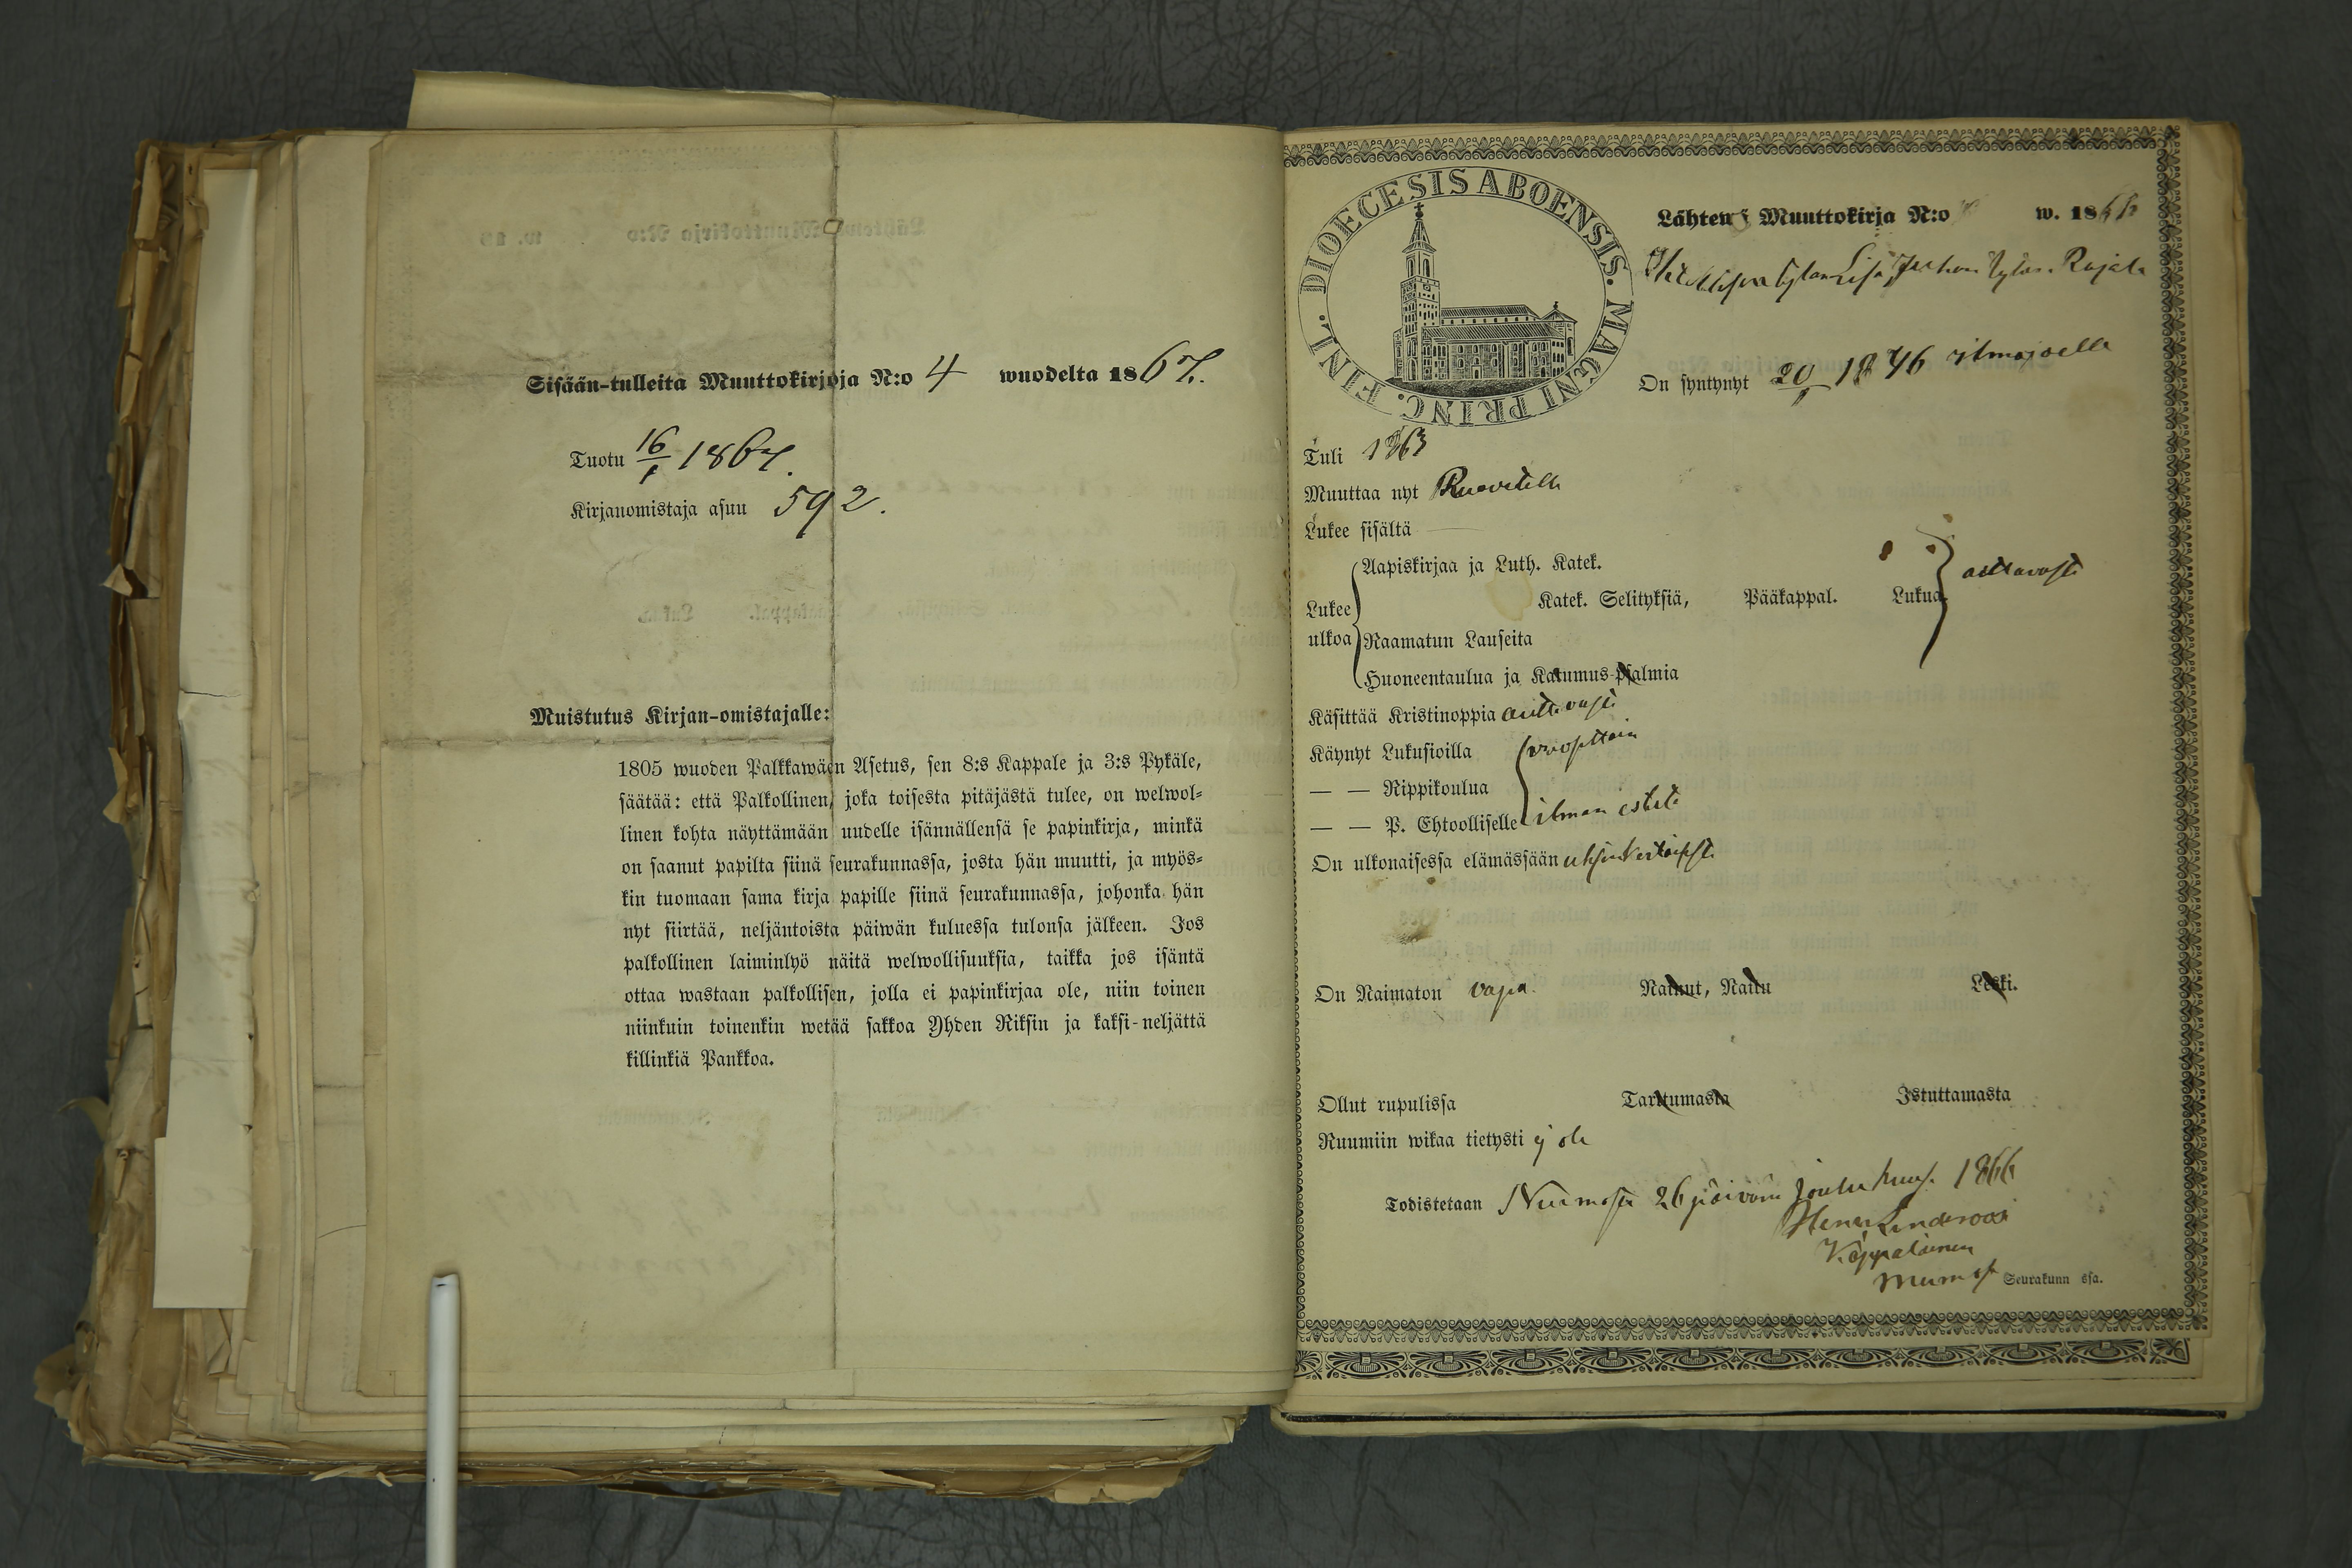 Sisään-tulleita Muuttokirjoja N:o 4 wuodelta 1867.
Tuotu 16/1 1867.
Kirjanomistaja asuu 592.
Muistutus Kirjan-omistajalle:
1805 wuoden Palkkawäen Asetus, sen 8:s Kappale ja 3:s Pykäle,
säätää: että Palkollinen, joka toisesta pitäjästä tulee, on welwol-
linen kohta näyttämään uudelle isännällensä se papinkirja, minkä
on saanut papilta siinä seurakunnassa, josta hän muutti, ja myös-
kin tuomaan sama kirja papille siinä seurakunnassa, johonka hän
nyt siirtää, neljäntoista päiwän kuluessa tulonsa jälkeen. Jos
palkollinen laiminlyö näitä welwollisuuksia, taikka jos isäntä
ottaa wastaan palkollisen, jolla ei papinkirjaa ole, niin toinen
niinkuin toinenkin wetää sakkoa Yhden Riksin ja kaksi-neljättä
killinkiä Pankkoa.
FINL. DIOECESIS ABOENSIS. MAGNI PRINC.
Lähtewä Muuttokirja N:o w. 1866
Lisa Juhon tytär Rajala
On syntynyt 20/1 1846 ilmajoella
Tuli 1863
Muuttaa nyt Ruovedelle
Lukee sisältä —
Lukee ulkoa
Aapiskirjaa ja Luth. Katek.
Katek. Selityksiä, Pääkappal. Lukua. auttavasti
Raamatun Lauseita
Huoneentaulua ja Katumus-Psalmia
Käsittää Kristinoppia auttavasti
Käynyt Lukusioilla vuosittain
— — Rippikoulua
— — P. Ehtoolliselle ilman estettä
On ulkonaisessa elämässään
On Naimaton vapa. Nainut, Naitu Leski.
Ollut rupulissa Tarttumasta Istuttamasta
Ruumiin wikaa tietysti ej ole
Todistetaan Nurmossa 26 päivänä joulu kuus. 1866
Kappalainen
Nurmos Seurakunn ssa.